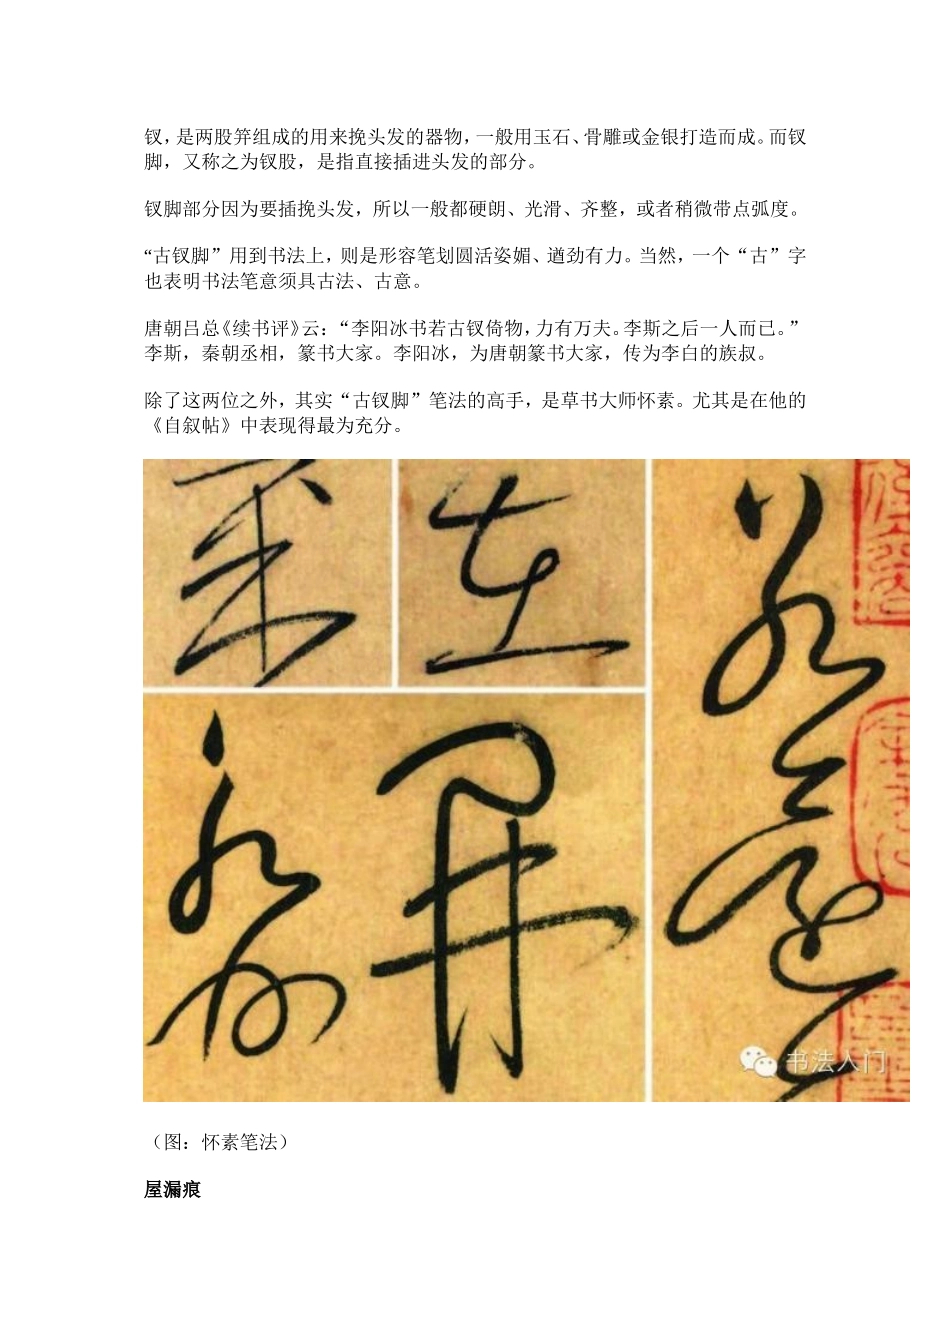 钗，是两股笄组成的用来挽头发的器物，一般用玉石、骨雕或金银打造而成。而钗
脚，又称之为钗股，是指直接插进头发的部分。
钗脚部分因为要插挽头发，所以一般都硬朗、光滑、齐整，或者稍微带点弧度。
“古钗脚”用到书法上，则是形容笔划圆活姿媚、遒劲有力。当然，一个“古”字
也表明书法笔意须具古法、古意。
唐朝吕总《续书评》云：“李阳冰书若古钗倚物，力有万夫。李斯之后一人而已。”
李斯，秦朝丞相，篆书大家。李阳冰，为唐朝篆书大家，传为李白的族叔。
除了这两位之外，其实“古钗脚”笔法的高手，是草书大师怀素。尤其是在他的
《自叙帖》中表现得最为充分。
书法入门
（图：怀素笔法）
屋漏痕